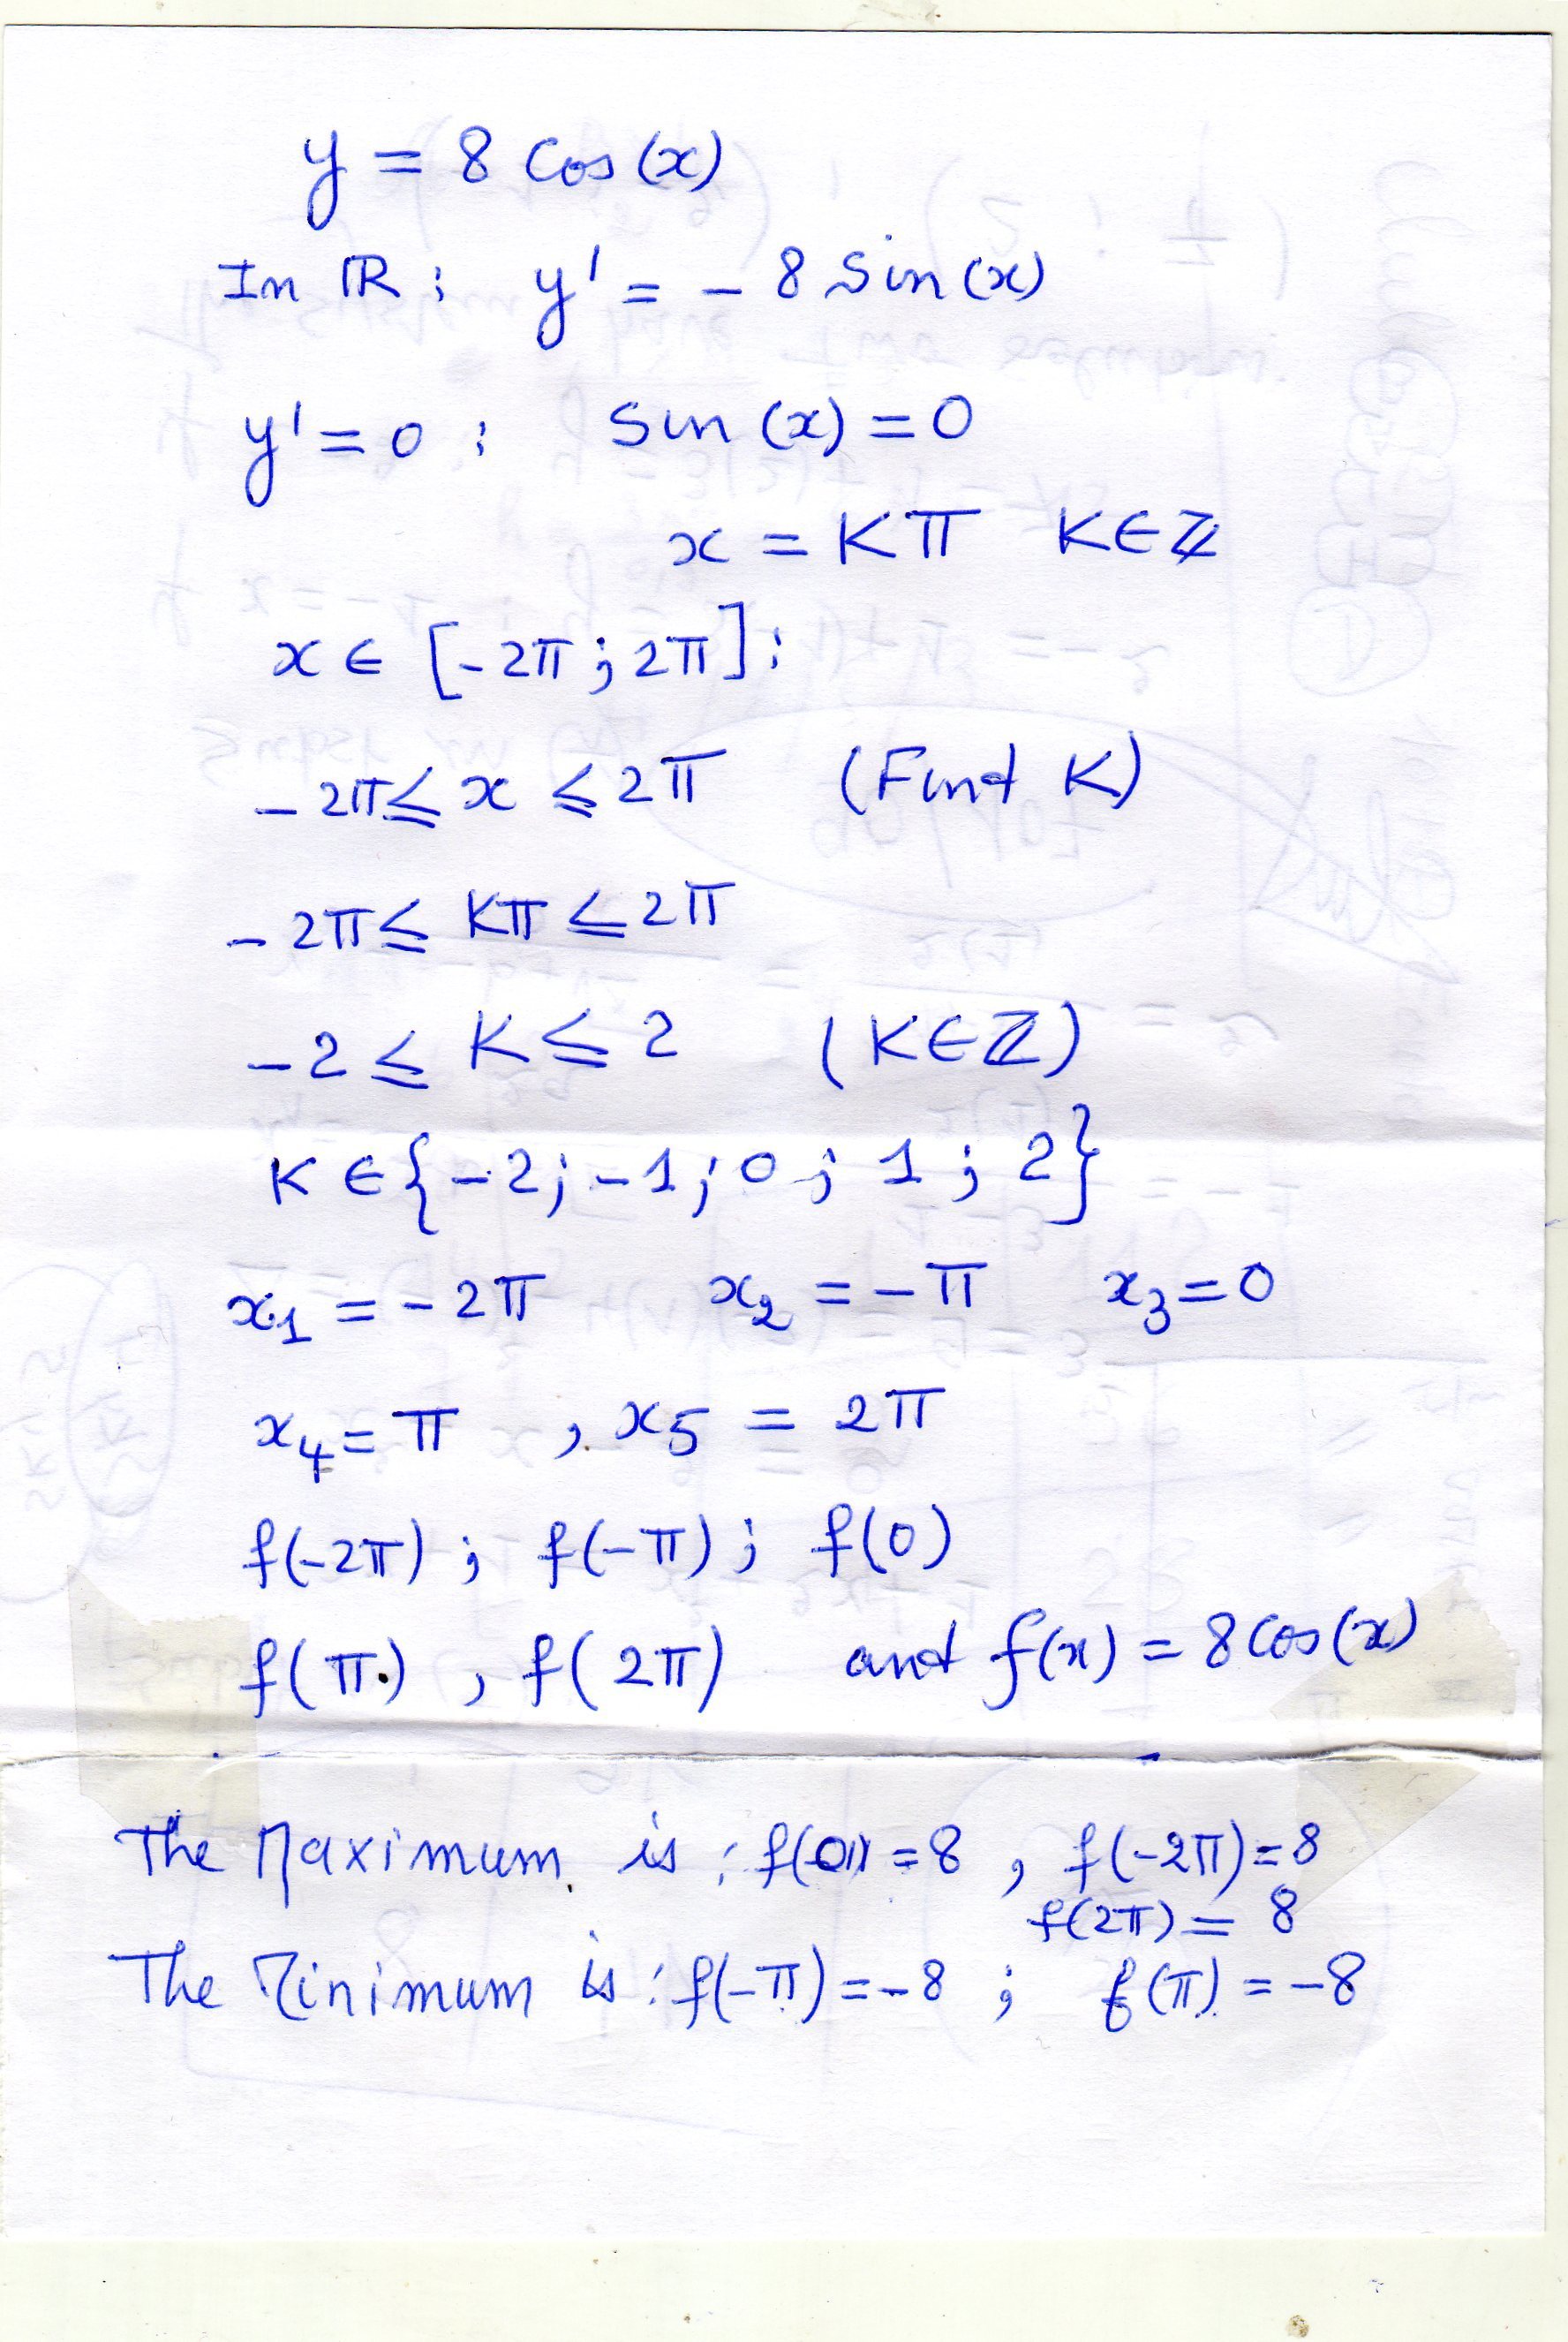 y = 8 cos(x)
In ℝ : y' = - 8 sin(x)
y' = 0 : sin(x) = 0
x = Kπ K∈ℤ
x ∈ [-2π ; 2π] :
- 2π ≤ x ≤ 2π (Find K)
- 2π ≤ Kπ ≤ 2π
-2 ≤ K ≤ 2 (K∈ℤ)
K ∈ {-2 ; -1 ; 0 ; 1 ; 2}
x₁ = - 2π x₂ = - π x₃ = 0
x₄ = π , x₅ = 2π
f(-2π) ; f(-π) ; f(0)
f(π) , f(2π) and f(x) = 8 cos(x)
The Maximum is : f(0) = 8 , f(-2π) = 8
f(2π) = 8
The Minimum is : f(-π) = -8 ; f(π) = -8